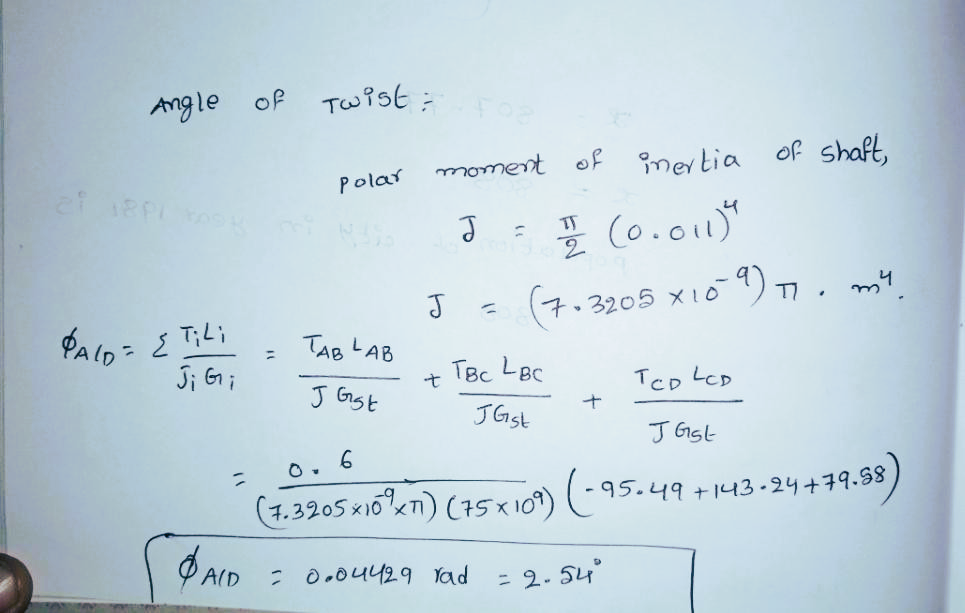 Angle of Twist :-
Polar moment of inertia of shaft,
J = π/2 (0.011)⁴
J = (7.3205 × 10⁻⁹) π . m⁴.
ϕA/D = Σ TiLi / JiGi = TAB LAB / J Gst + TBC LBC / J Gst + TCD LCD / J Gst
= 0.6 / (7.3205 × 10⁻⁹ × π) (75 × 10⁹) (-95.49 + 143.24 + 79.58)
ϕA/D = 0.04429 rad = 2.54°